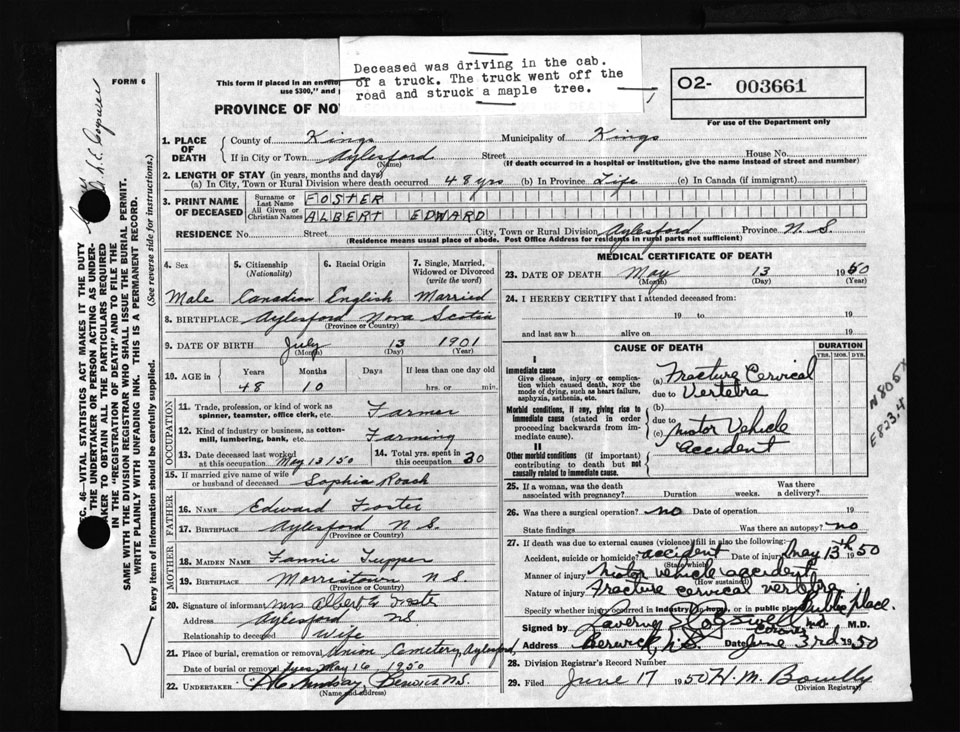 FORM 6
Deceased was driving in the cab.
of a truck. The truck went off the
road and struck a maple tree.
This form if placed in an
use $300," and
PROVINCE OF NO
O2- 003661
For use of the Department only
1. PLACE OF DEATH
County of Kings Municipality of Kings
If in City or Town Aylesford Street House No.
(Name) (If death occurred in a hospital or institution, give the name instead of street and number)
2. LENGTH OF STAY (in years, months and days)
(a) In City, Town or Rural Division where death occurred 48 yrs (b) In Province Life (c) In Canada (if immigrant)
3. PRINT NAME OF DECEASED
Surname or Last Name FOSTER
All Given or Christian Names ALBERT EDWARD
RESIDENCE No. Street City, Town or Rural Division Aylesford Province N. S.
(Residence means usual place of abode. Post Office Address for residents in rural parts not sufficient)
4. Sex Male
5. Citizenship (Nationality) Canadian
6. Racial Origin English
7. Single, Married, Widowed or Divorced (write the word) Married
8. BIRTHPLACE Aylesford Nova Scotia
(Province or Country)
9. DATE OF BIRTH July 13 1901
(Month) (Day) (Year)
10. AGE in Years Months Days If less than one day old
48 10 hrs. or min.
OCCUPATION
11. Trade, profession, or kind of work as spinner, teamster, office clerk, etc. Farmer
12. Kind of industry or business, as cotton-mill, lumbering, bank, etc. Farming
13. Date deceased last worked at this occupation May 13/50
14. Total yrs. spent in this occupation 30
15. If married give name of wife or husband of deceased Sophia Roach
FATHER
16. NAME Edward Foster
17. BIRTHPLACE Aylesford N.S.
(Province or Country)
MOTHER
18. MAIDEN NAME Fannie Tupper
19. BIRTHPLACE Morristown N.S.
(Province or Country)
20. Signature of informant Mrs Albert E Foster
Address Aylesford NS.
Relationship to deceased Wife
21. Place of burial, cremation or removal Union Cemetery, Aylesford,
Date of burial or removal May 16, 1950
22. UNDERTAKER Lindsay, Berwick N.S.
(Name and address)
MEDICAL CERTIFICATE OF DEATH
23. DATE OF DEATH May 13 1950
(Month) (Day) (Year)
24. I HEREBY CERTIFY that I attended deceased from:
19 to 19
and last saw h alive on 19
CAUSE OF DEATH
DURATION
YRS. MOS. DYS.
I
Immediate cause
Give disease, injury or complication which caused death, not the mode of dying, such as heart failure, asphyxia, asthenia, etc.
(a) Fracture Cervical
due to Vertebra
Morbid conditions, if any, giving rise to immediate cause (stated in order proceeding backwards from immediate cause).
(b)
due to
(c) Motor Vehicle
accident
II
Other morbid conditions (if important) contributing to death but not causally related to immediate cause.
N805X
E823.4
25. If a woman, was the death associated with pregnancy? Duration weeks. Was there a delivery?
26. Was there a surgical operation? no Date of operation 19
State findings Was there an autopsy? no
27. If death was due to external causes (violence) fill in also the following:
Accident, suicide or homicide? accident Date of injury May 13th 1950
(State which)
Manner of injury Motor vehicle accident
(How sustained)
Nature of injury Fracture cervical vertebra
Specify whether injury occurred in industry, in home, or in public place Public place.
Signed by M.D.
Coroner
Address Berwick, N.S. Date June 3rd 1950
28. Division Registrar's Record Number
29. Filed June 17 1950 H. M. Bowlby
(Division Registrar)
SEC. 46—VITAL STATISTICS ACT MAKES IT THE DUTY
THE UNDERTAKER OR PERSON ACTING AS UNDER-
TAKER TO OBTAIN ALL THE PARTICULARS REQUIRED
IN THE "REGISTRATION OF DEATH" AND TO FILE THE
SAME WITH THE DIVISION REGISTRAR WHO SHALL ISSUE THE BURIAL PERMIT.
WRITE PLAINLY WITH UNFADING INK. THIS IS A PERMANENT RECORD.
Every item of information should be carefully supplied. (See reverse side for instructions.)